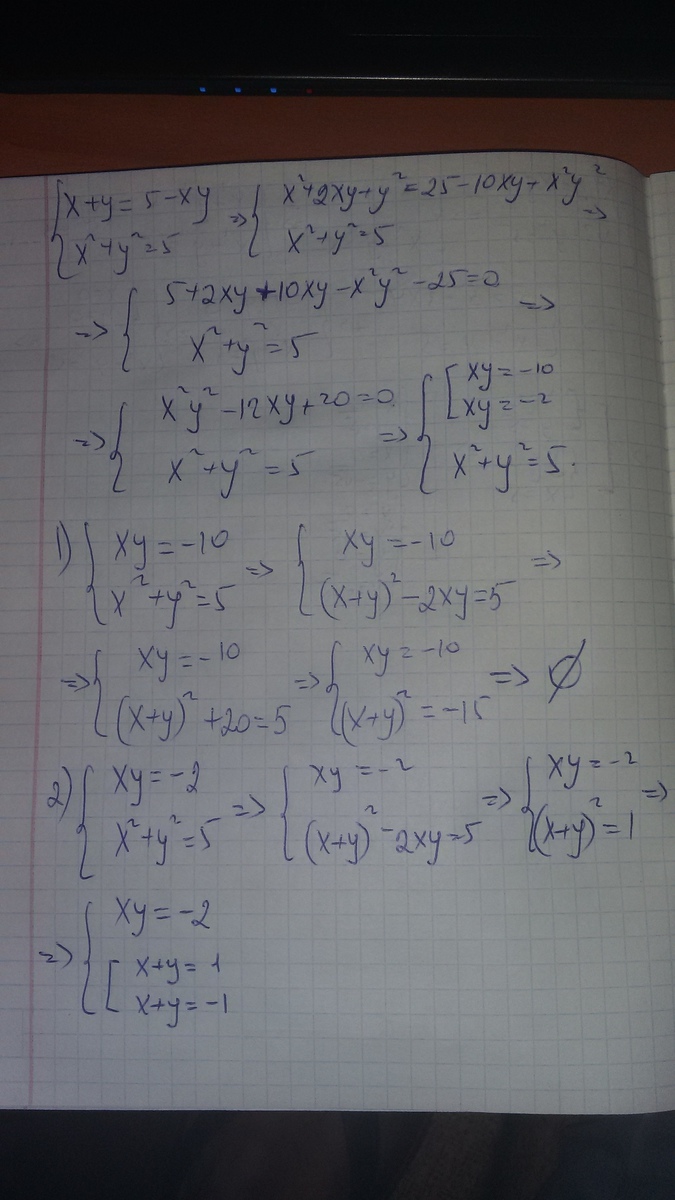 {x+y=5-xy; x²+y²=5 => {x²+2xy+y²=25-10xy+x²y²; x²+y²=5 =>
=> {5+2xy+10xy-x²y²-25=0; x²+y²=5 =>
=> {x²y²-12xy+20=0; x²+y²=5 => {[xy=-10; xy=-2; x²+y²=5.
1) {xy=-10; x²+y²=5 => {xy=-10; (x+y)²-2xy=5 =>
=> {xy=-10; (x+y)²+20=5 => {xy=-10; (x+y)²=-15 => ∅
2) {xy=-2; x²+y²=5 => {xy=-2; (x+y)²-2xy=5 => {xy=-2; (x+y)²=1 =>
=> {xy=-2; [x+y=1; x+y=-1